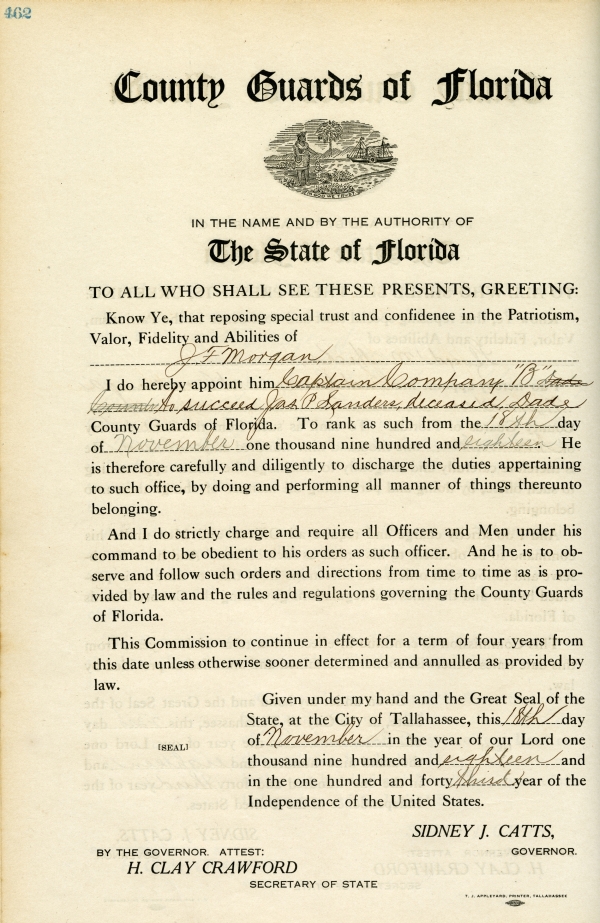 462
County Guards of Florida
IN THE NAME AND BY THE AUTHORITY OF
The State of Florida
TO ALL WHO SHALL SEE THESE PRESENTS, GREETING:
Know Ye, that reposing special trust and confidenee in the Patriotism,
Valor, Fidelity and Abilities of
J F Morgan
I do hereby appoint him Captain Company "B" Dade
County to succeed Jas. P. Sanders, deceased, Dade
County Guards of Florida. To rank as such from the 18th day
of November one thousand nine hundred and eighteen He
is therefore carefully and diligently to discharge the duties appertaining
to such office, by doing and performing all manner of things thereunto
belonging.
And I do strictly charge and require all Officers and Men under his
command to be obedient to his orders as such officer. And he is to ob-
serve and follow such orders and directions from time to time as is pro-
vided by law and the rules and regulations governing the County Guards
of Florida.
This Commission to continue in effect for a term of four years from
this date unless otherwise sooner determined and annulled as provided by
law.
Given under my hand and the Great Seal of the
State, at the City of Tallahassee, this 18th day
of November in the year of our Lord one
[SEAL]
thousand nine hundred and eighteen and
in the one hundred and forty third year of the
Independence of the United States.
SIDNEY J. CATTS,
BY THE GOVERNOR. ATTEST: GOVERNOR.
H. CLAY CRAWFORD
SECRETARY OF STATE
T. J. APPLEYARD, PRINTER, TALLAHASSEE